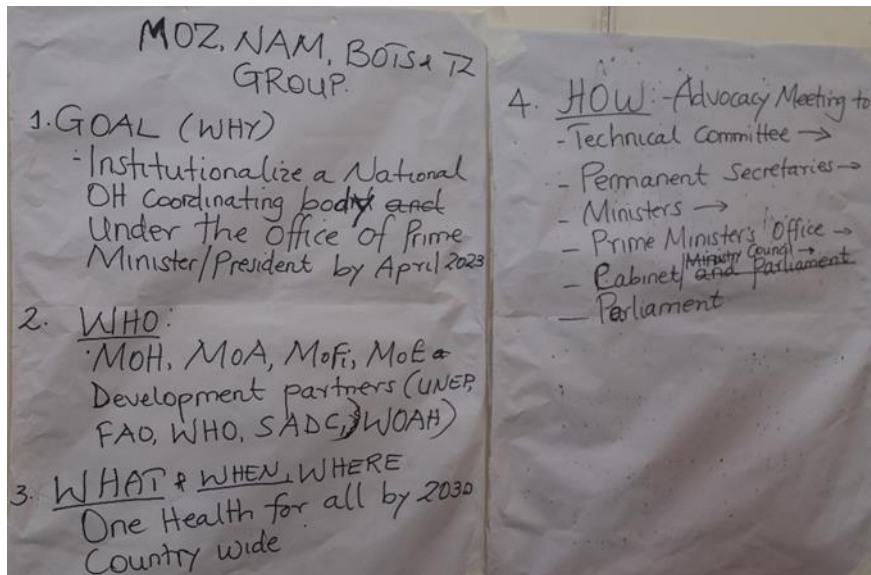 MOZ, NAM, BOTS & TZ
GROUP.
1. GOAL (WHY)
- Institutionalize a National
OH Coordinating body and
Under the Office of Prime
Minister/President by April 2023
2. WHO:
MOH, MOA, MoFi, MoE &
Development partners (UNEP,
FAO, WHO, SADC, WOAH)
3. WHAT & WHEN, WHERE
One Health for all by 2030
Country wide
4. HOW: - Advocacy Meeting to
- Technical Committee →
- Permanent Secretaries →
- Ministers →
- Prime Minister's Office →
- Cabinet/Ministry Council → and Parliament
- Parliament